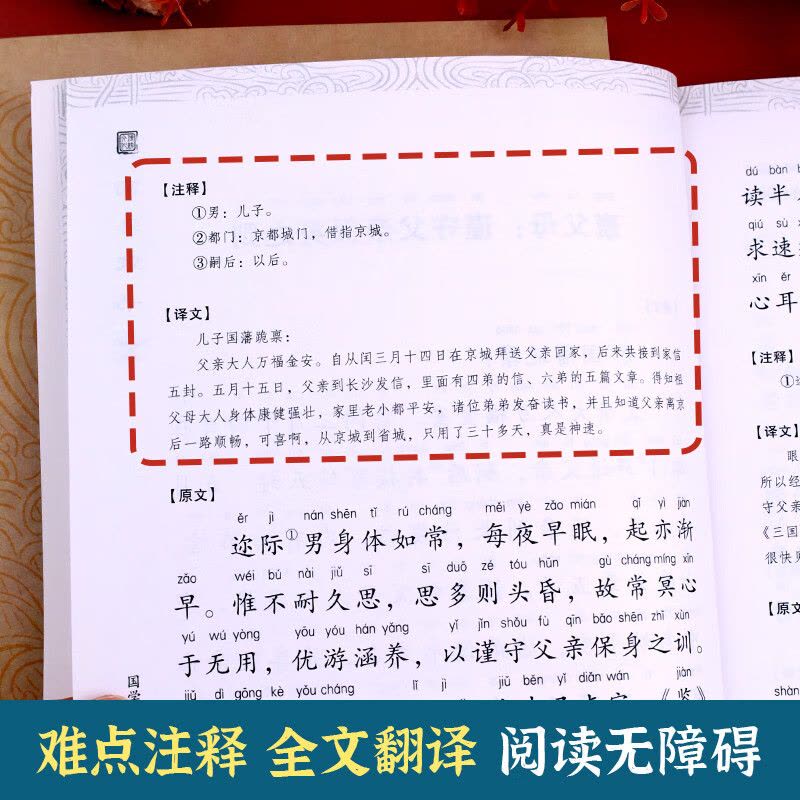 【注释】
①男：儿子。
②都门：京都城门，借指京城。
③嗣后：以后。
【译文】
儿子国藩跪禀：
父亲大人万福金安。自从闰三月十四日在京城拜送父亲回家，后来共接到家信
五封。五月十五日，父亲到长沙发信，里面有四弟的信、六弟的五篇文章。得知祖
父母大人身体康健强壮，家里老小都平安，诸位弟弟发奋读书，并且知道父亲离京
后一路顺畅，可喜啊，从京城到省城，只用了三十多天，真是神速。
【原文】
ěr jì nán shēn tǐ rú cháng měi yè zǎo mián qǐ yì jiàn
迩际①男身体如常，每夜早眠，起亦渐
zǎo wéi bú nài jiǔ sī sī duō zé tóu hūn gù cháng míng xīn
早。惟不耐久思，思多则头昏，故常冥心
yú wú yòng yōu yóu hán yǎng yǐ jǐn shǒu fù qīn bǎo shēn zhī xùn
于无用，优游涵养，以谨守父亲保身之训。
jiǔ dì gōng kè yǒu cháng lǐ jì jiǔ běn yǐ diǎn wán jiàn
《鉴》
国学
dú bàn
读半
qiú sù
求速
xīn ěr
心耳
【注释】
①
【译文】
眼
所以经
守父亲
《三国
很快见
【原文】
shàn
难点注释 全文翻译 阅读无障碍